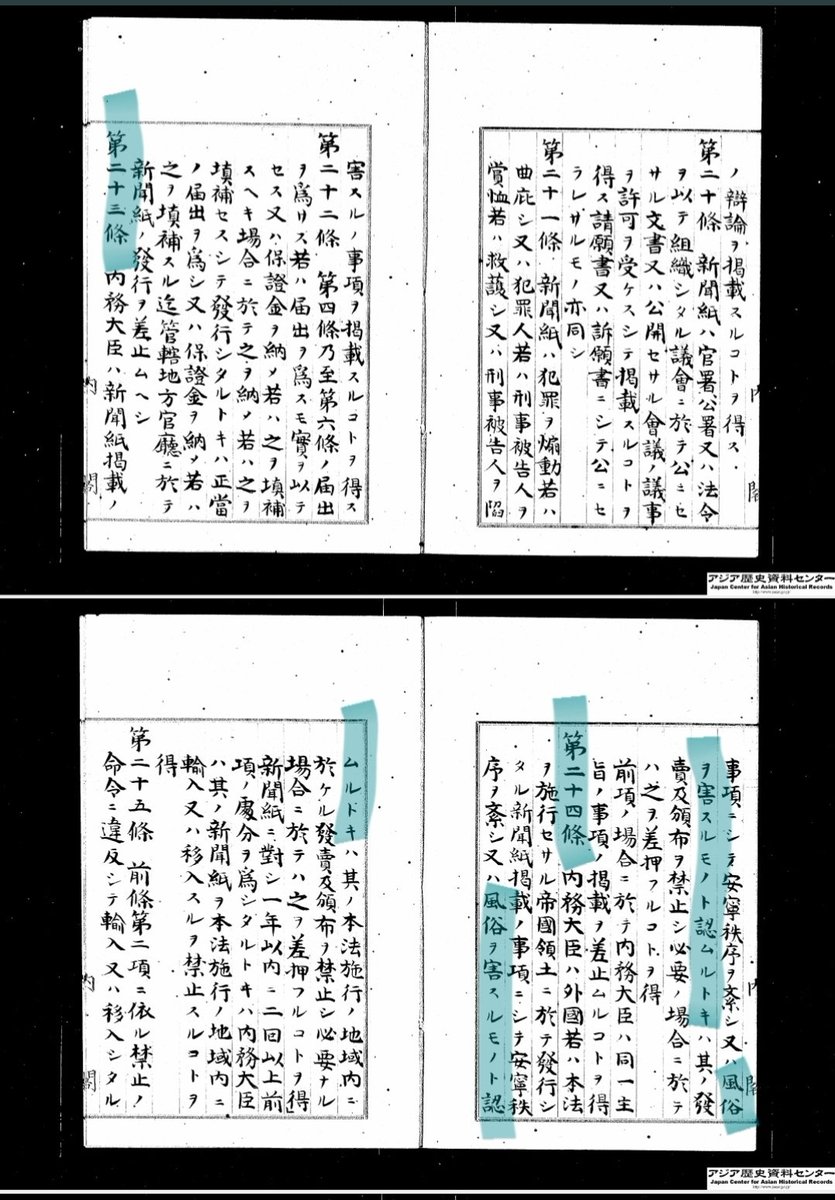 ノ辯論ヲ掲載スルコトヲ得ス
第二十條 新聞紙ハ官署公署又ハ法令
ヲ以テ組織シタル議會ニ於テ公ニセ
サル文書又ハ公開セサル會議ノ議事
ヲ許可ヲ受ケスシテ掲載スルコトヲ
得ス請願書又ハ訴願書ニシテ公ニセ
ラレザルモノ亦同シ
第二十一條 新聞紙ハ犯罪ヲ煽動若ハ
曲庇シ又ハ犯罪人若ハ刑事被告人ヲ
賞恤若ハ救護シ又ハ刑事被告人ヲ陷
内閣
害スルノ事項ヲ掲載スルコトヲ得ス
第二十二條 第四條乃至第六條ノ届出
ヲ爲サス若ハ届出ヲ爲スモ實ヲ以テ
セス又ハ保證金ヲ納メ若ハ之ヲ填補
スヘキ場合ニ於テ之ヲ納メ若ハ之ヲ
填補セスシテ發行シタルトキハ正當
ノ届出ヲ爲シ又ハ保證金ヲ納メ若ハ
之ヲ填補スル迄管轄地方官廳ニ於テ
新聞紙ノ發行ヲ差止ムヘシ
第二十三條 内務大臣ハ新聞紙掲載ノ
内閣
アジア歴史資料センター
Japan Center for Asian Historical Records
http://www.jacar.go.jp/
事項ニシテ安寧秩序ヲ紊シ又ハ風俗
ヲ害スルモノト認ムルトキハ其ノ發
賣及頒布ヲ禁止シ必要ノ場合ニ於テ
ハ之ヲ差押フルコトヲ得
前項ノ場合ニ於テ内務大臣ハ同一主
旨ノ事項ノ掲載ヲ差止ムルコトヲ得
第二十四條 内務大臣ハ外國若ハ本法
ヲ施行セサル帝國領土ニ於テ發行シ
タル新聞紙掲載ノ事項ニシテ安寧秩
序ヲ紊シ又ハ風俗ヲ害スルモノト認
内閣
ムルトキハ其ノ本法施行ノ地域内ニ
於ケル發賣及頒布ヲ禁止シ必要ナル
場合ニ於テハ之ヲ差押フルコトヲ得
新聞紙ニ對シ一年以内ニ二回以上前
項ノ處分ヲ爲シタルトキハ内務大臣
ハ其ノ新聞紙ヲ本法施行ノ地域内ニ
輸入又ハ移入スルヲ禁止スルコトヲ
得
第二十五條 前條第二項ニ依ル禁止ノ
命令ニ違反シテ輸入又ハ移入シタル
内閣
アジア歴史資料センター
Japan Center for Asian Historical Records
http://www.jacar.go.jp/